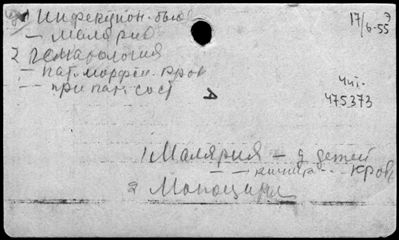 1 Инфекцион. бол
— Малярия
2 Гематология
— пат. морфол. кров
— — при пат. сост
17/6-55
Чит.
475373
1 Малярия — у детей
— — кров
2 Моноциты